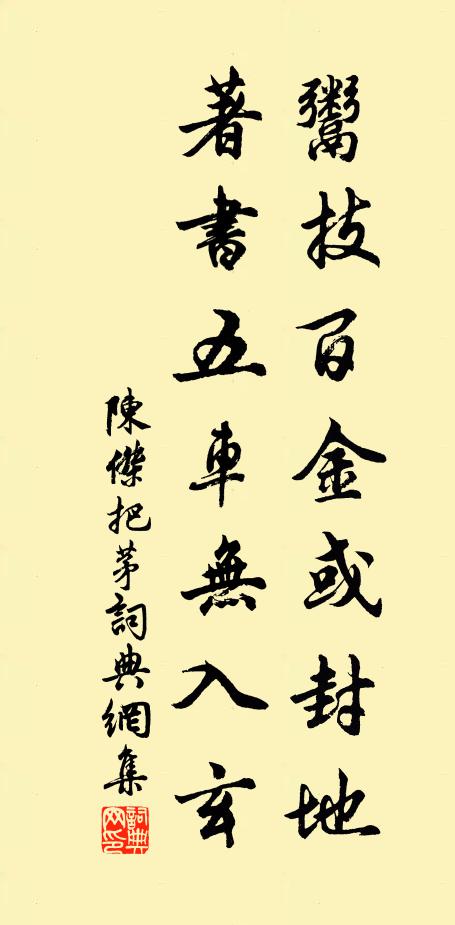 鬻技百金或封地
著書五車無入玄
陳傑把茅詞典網集
詞典網印